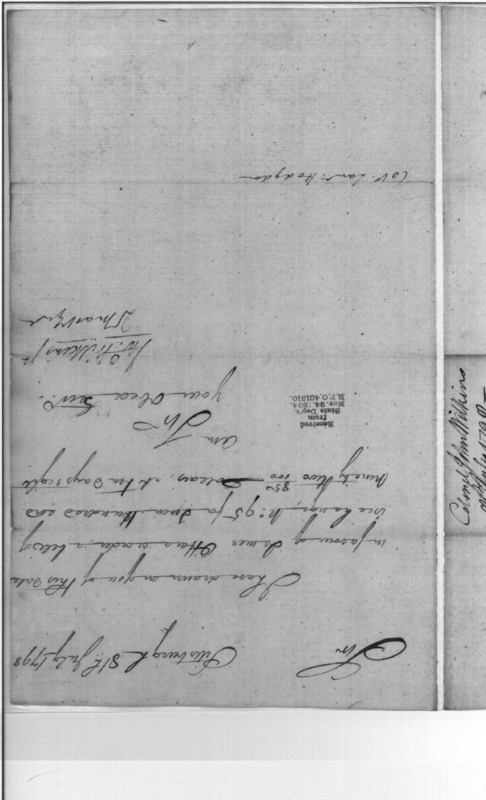 Pittsburgh 8th July 1798
Sir
I have drawn on you of this date
in favour of James O'Hara order, a bill of
Exchange, No. 95 for Seven Hundred and
Ninety two 85/100 Dollars, at ten Days sight
am
Sir
Your Obed Serv.
Jn. Wilkins Jr
QMasr Genl
Col. Saml. Hodgdon
Received
from
State Dep't.
Nov. 24, 1894
R.P.O. 401810.
Colonel John Wilkins
8th July 1798